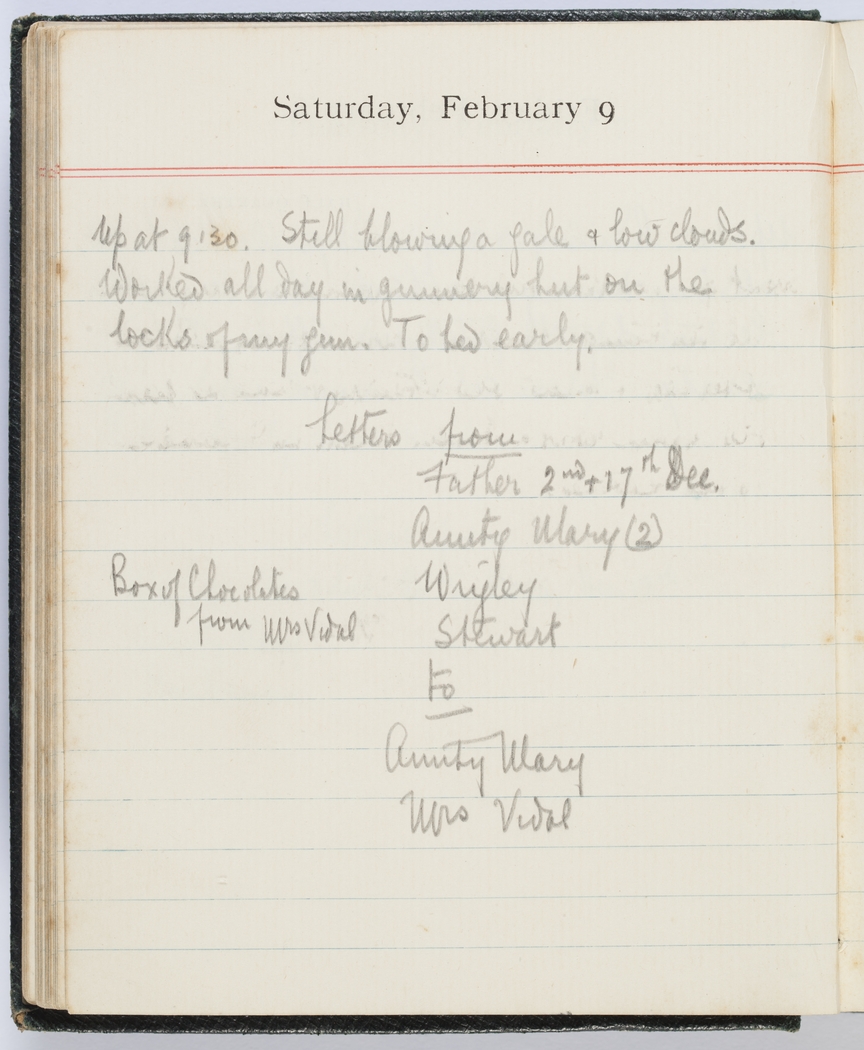 Saturday, February 9
Up at 9.30. Still blowing a gale & low clouds.
Worked all day in gunnery hut on the
locks of my gun. To bed early.
Letters from
Father 2nd + 17th Dec.
Aunty Mary (2)
Box of Chocolates
from Mrs Vidal
Wrigley
Stewart
to
Aunty Mary
Mrs Vidal